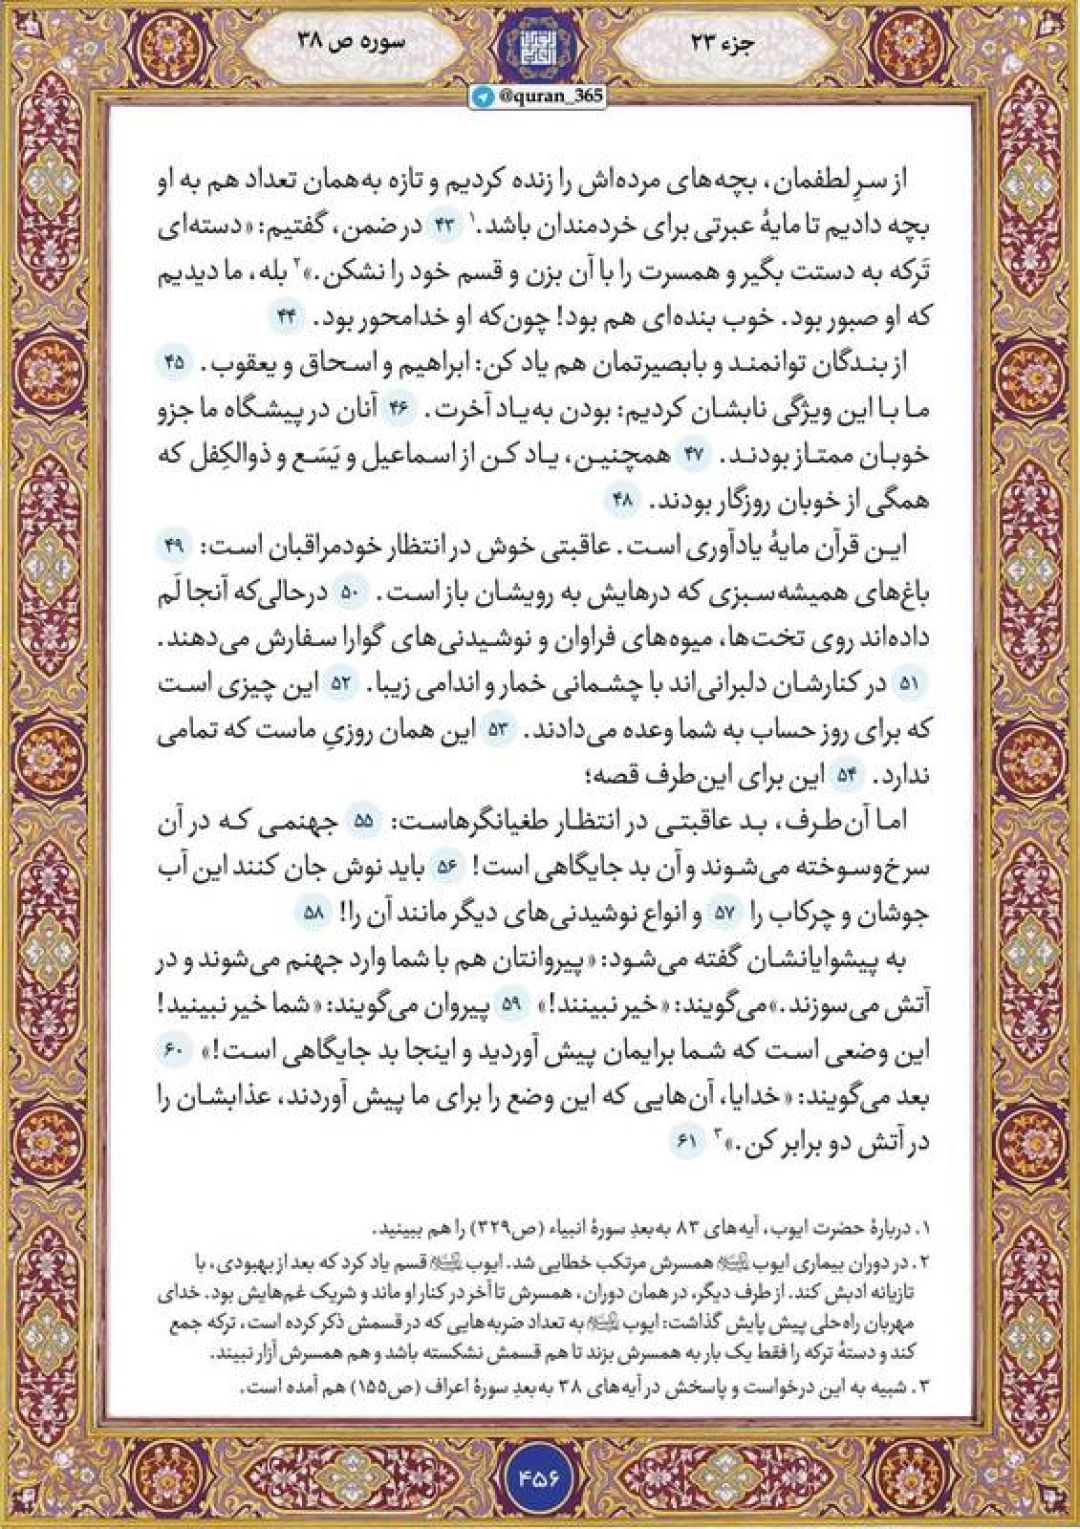 جزء ۲۳
سوره ص ۳۸
@quran_365
از سرِ لطفمان، بچه‌های مرده‌اش را زنده کردیم و تازه به‌همان تعداد هم به او
بچه دادیم تا مایهٔ عبرتی برای خردمندان باشد.۱ ۴۳ در ضمن، گفتیم: «دسته‌ای
تَرکه به دستت بگیر و همسرت را با آن بزن و قسم خود را نشکن.»۲ بله، ما دیدیم
که او صبور بود. خوب بنده‌ای هم بود! چون‌که او خدامحور بود. ۴۴
از بندگان توانمند و بابصیرتمان هم یاد کن: ابراهیم و اسحاق و یعقوب. ۴۵
ما با این ویژگی نابشان کردیم: بودن به‌یاد آخرت. ۴۶ آنان در پیشگاه ما جزو
خوبان ممتاز بودند. ۴۷ همچنین، یاد کن از اسماعیل و یَسَع و ذوالکِفل که
همگی از خوبان روزگار بودند. ۴۸
این قرآن مایهٔ یادآوری است. عاقبتی خوش در انتظار خودمراقبان است: ۴۹
باغ‌های همیشه‌سبزی که درهایش به رویشان باز است. ۵۰ درحالی‌که آنجا لَم
داده‌اند روی تخت‌ها، میوه‌های فراوان و نوشیدنی‌های گوارا سفارش می‌دهند.
۵۱ در کنارشان دلبرانی‌اند با چشمانی خمار و اندامی زیبا. ۵۲ این چیزی است
که برای روز حساب به شما وعده می‌دادند. ۵۳ این همان روزیِ ماست که تمامی
ندارد. ۵۴ این برای این‌طرف قصه؛
اما آن‌طرف، بد عاقبتی در انتظار طغیانگرهاست: ۵۵ جهنمی که در آن
سرخ‌وسوخته می‌شوند و آن بد جایگاهی است! ۵۶ باید نوش جان کنند این آب
جوشان و چرکاب را ۵۷ و انواع نوشیدنی‌های دیگر مانند آن را! ۵۸
به پیشوایانشان گفته می‌شود: «پیروانتان هم با شما وارد جهنم می‌شوند و در
آتش می‌سوزند.» می‌گویند: «خیر نبینند!» ۵۹ پیروان می‌گویند: «شما خیر نبینید!
این وضعی است که شما برایمان پیش آوردید و اینجا بد جایگاهی است!» ۶۰
بعد می‌گویند: «خدایا، آن‌هایی که این وضع را برای ما پیش آوردند، عذابشان را
در آتش دو برابر کن.»۳ ۶۱
۱. دربارهٔ حضرت ایوب، آیه‌های ۸۳ به‌بعدِ سورهٔ انبیاء (ص۳۲۹) را هم ببینید.
۲. در دوران بیماری ایوب همسرش مرتکب خطایی شد. ایوب قسم یاد کرد که بعد از بهبودی، با
تازیانه ادبش کند. از طرف دیگر، در همان دوران، همسرش تا آخر در کنار او ماند و شریک غم‌هایش بود. خدای
مهربان راه‌حلی پیش پایش گذاشت: ایوب به تعداد ضربه‌هایی که در قسمش ذکر کرده است، ترکه جمع
کند و دستهٔ ترکه را فقط یک بار به همسرش بزند تا هم قسمش نشکسته باشد و هم همسرش آزار نبیند.
۳. شبیه به این درخواست و پاسخش در آیه‌های ۳۸ به‌بعدِ سورهٔ اعراف (ص۱۵۵) هم آمده است.
۴۵۶